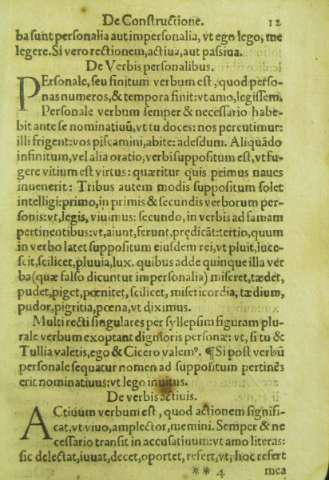 De Constructione. 12
ba sunt personalia aut impersonalia, vt ego lego, me
legere. Si vero rectionem, actiua, aut passiua.
De Verbis personalibus.
PErsonale, seu finitum verbum est, quod perso-
nas numeros, & tempora finit: vt amo, legissem.
Personale verbum semper & necessario habe-
bit ante se nominatiuũ, vt tu doces: nos percutimur:
illi frigent: vos piscamini, abite: adesdum. Aliquãdo
infinitum, vel alia oratio, verbi suppositum est, vt fu-
gere vitium est virtus: quæritur quis primus naues
inuenerit: Tribus autem modis suppositum solet
intelligi: primo, in primis & secundis verborum per-
sonis: vt, legis, viuimus: secundo, in verbis ad famam
pertinentibus: vt, aiunt, ferunt, prędicãt: tertio, quum
in verbo latet suppositum eiusdem rei, vt pluit, luce-
scit, scilicet, pluuia, lux. quibus adde quinque illa ver
ba (quæ falso dicuntur impersonalia) miseret, tædet,
pudet, piget, pœnitet, scilicet, misericordia, tædium,
pudor, pigritia, pœna, vt diximus.
Multi recti singulares per syllepsim figuram plu-
rale verbum exoptant dignioris personæ: vt, si tu &
Tullia valetis, ego & Cicero valemꝰ. ¶ Si post verbũ
personale sequatur nomen ad suppositum pertinẽs
erit nominatiuus: vt lego inuitus.
De verbis actiuis.
ACtiuum verbum est, quod actionem signifi-
cat, vt viuo, amplector, memini. Semper & ne
cessario transit in accusatiuum: vt amo literas:
sic delectat, iuuat, decet, oportet, refert, vt, hoc refert
** 4 mea